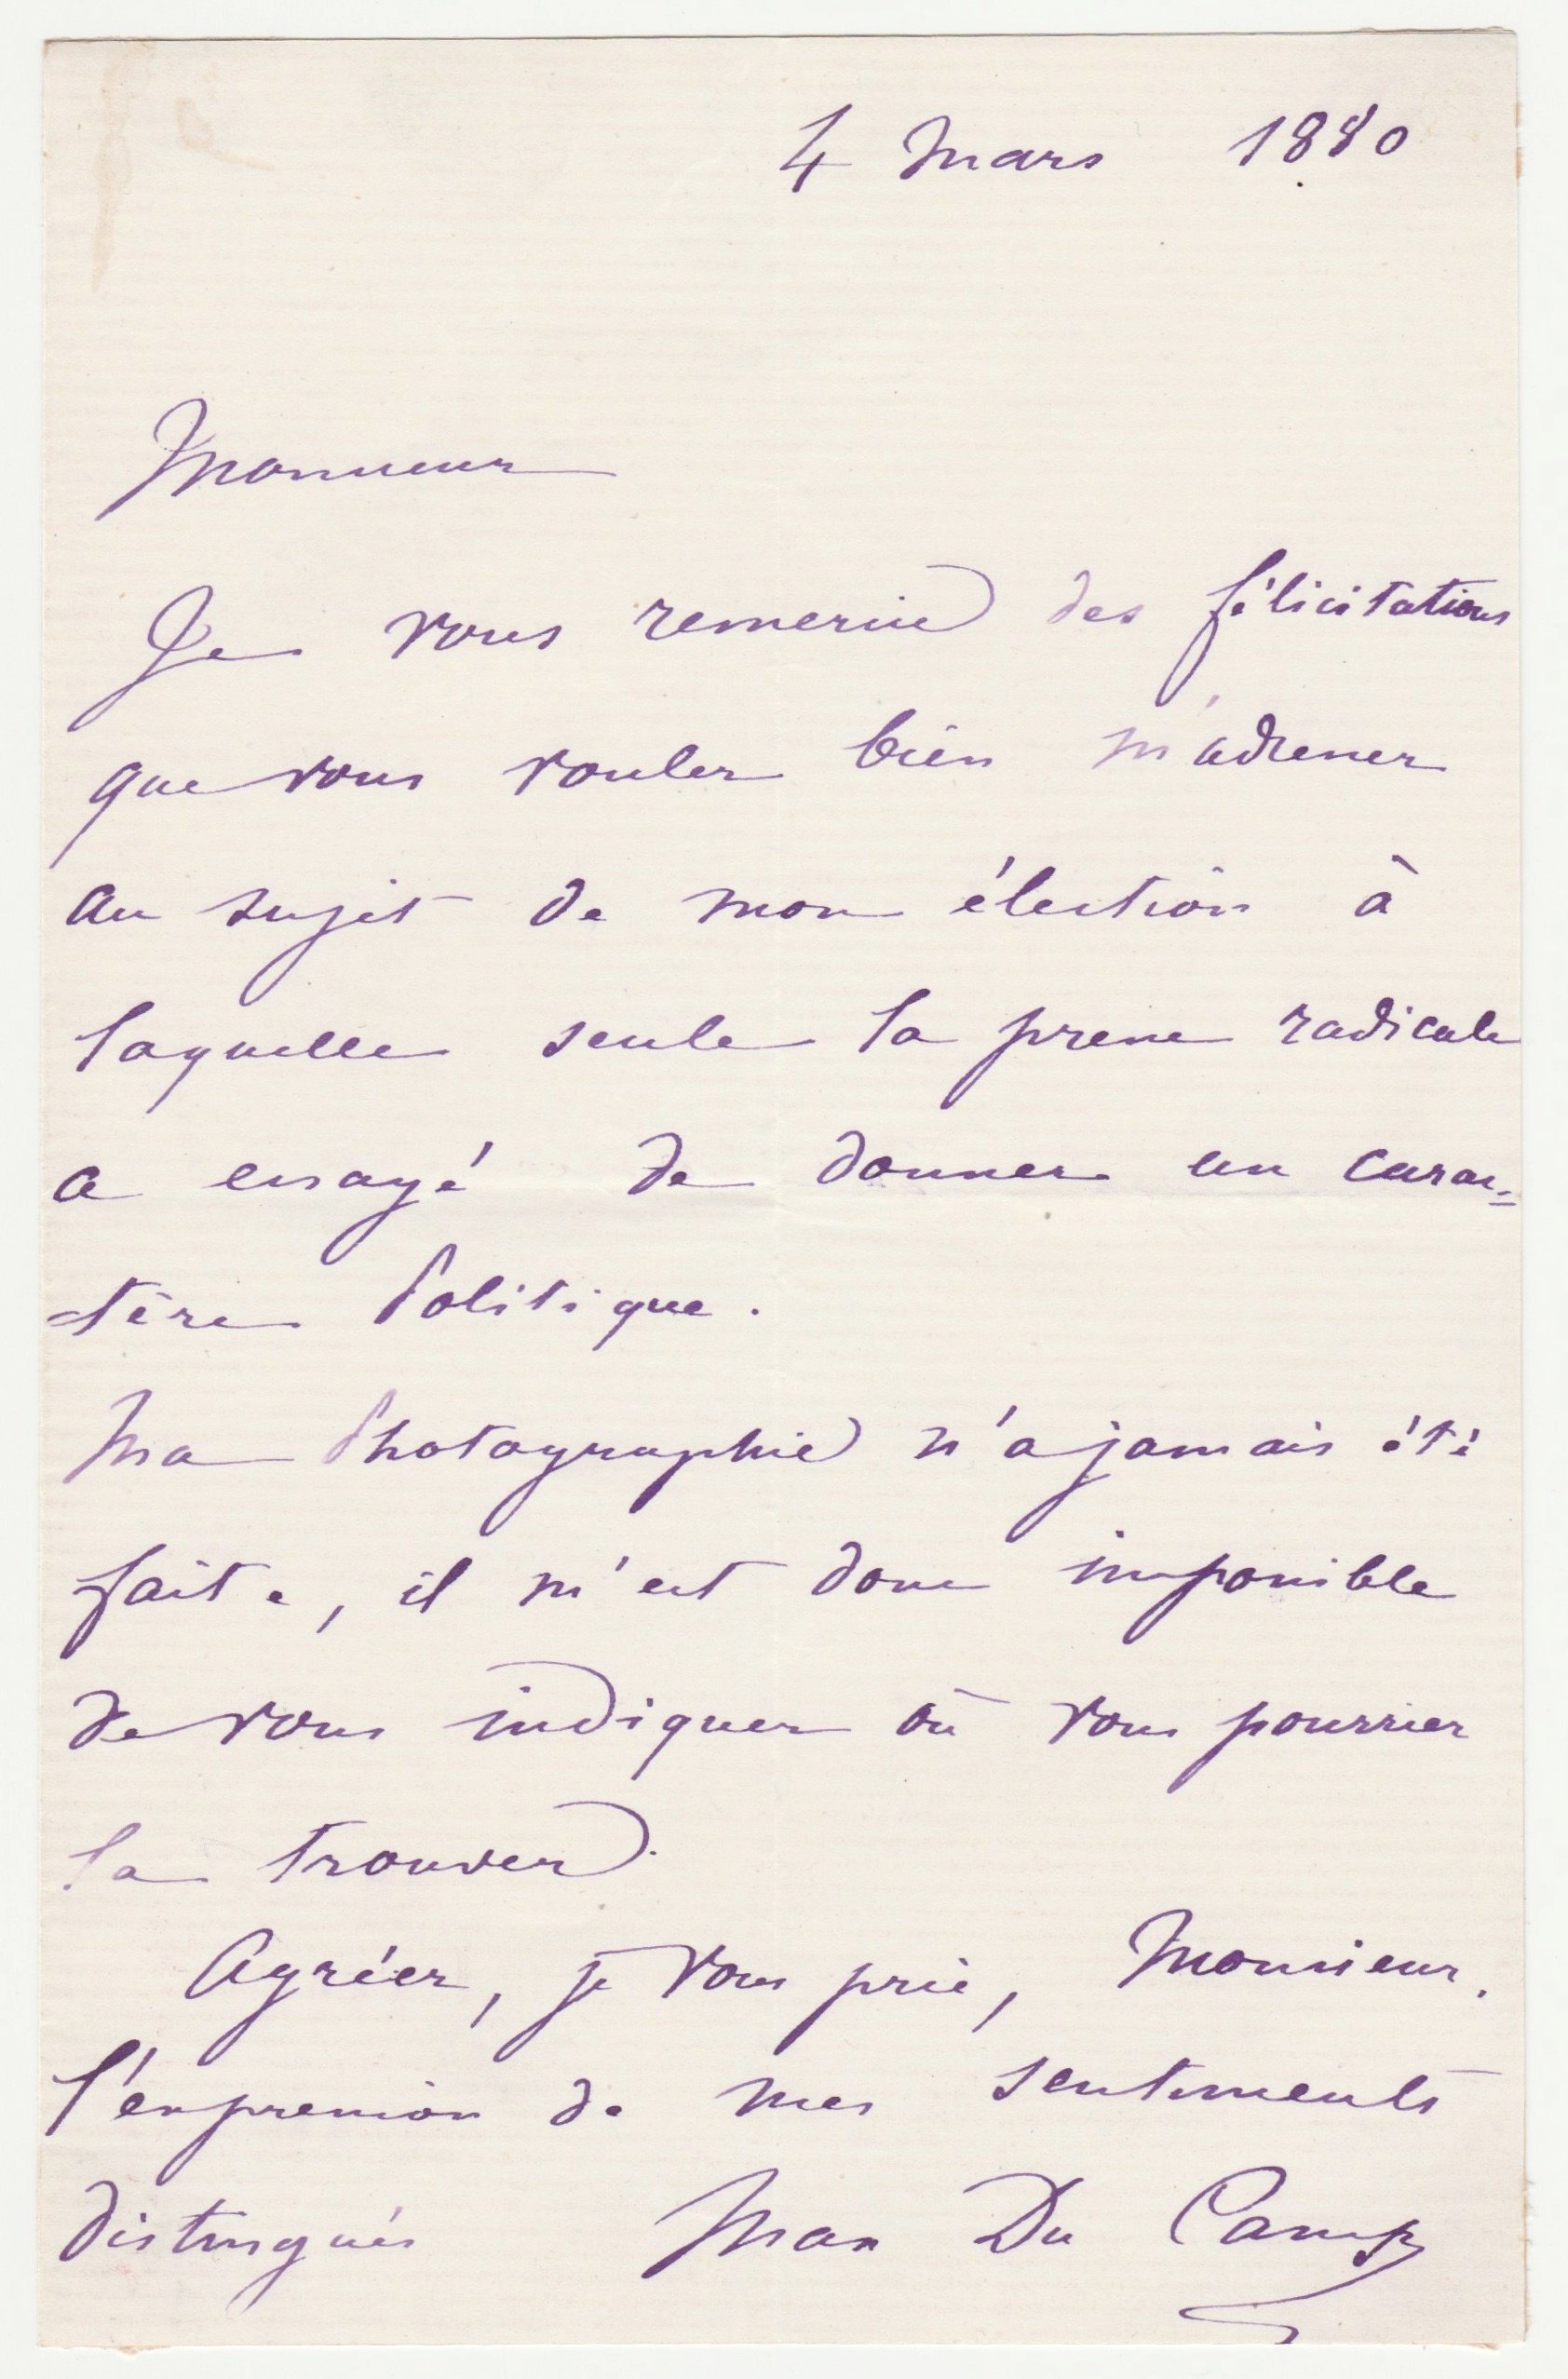 4 Mars 1880
Monsieur
Je vous remercie des félicitations
que vous voulez bien m'adresser
au sujet de mon élection à
laquelle seule la presse radicale
a essayé de donner un carac-
-tère Politique.
Ma Photographie n'a jamais été
faite, il m'est donc impossible
de vous indiquer où vous pourriez
la trouver.
Agréez, je vous prie, Monsieur,
l'expression de mes sentiments
distingués Max Du Camp